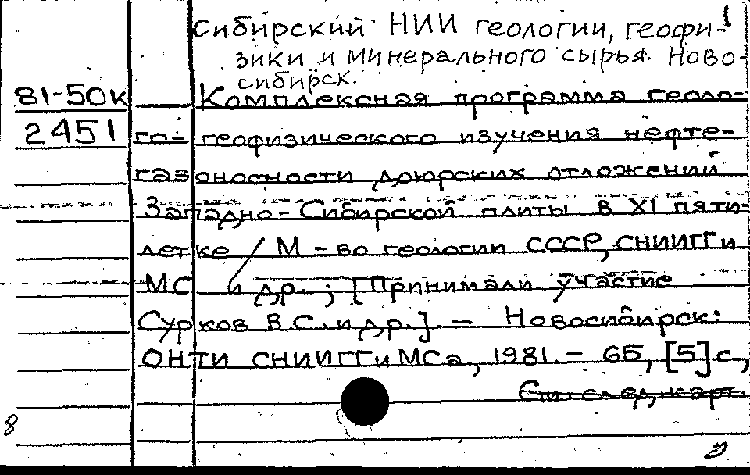 Сибирский НИИ геологии, геофи-
зики и минерального сырья. Ново-
сибирск.
81-50к
2451
Комплексная программа геоло-
го-геофизического изучения нефте-
газоносности доюрских отложений
Западно-Сибирской плиты в XI пяти-
летке / М-во геологии СССР, СНИИГГи
МС и др.; [Принимали участие
Сурков В.С. и др.]. - Новосибирск:
ОНТИ СНИИГГиМСа, 1981. - 65, [5] с.,
8